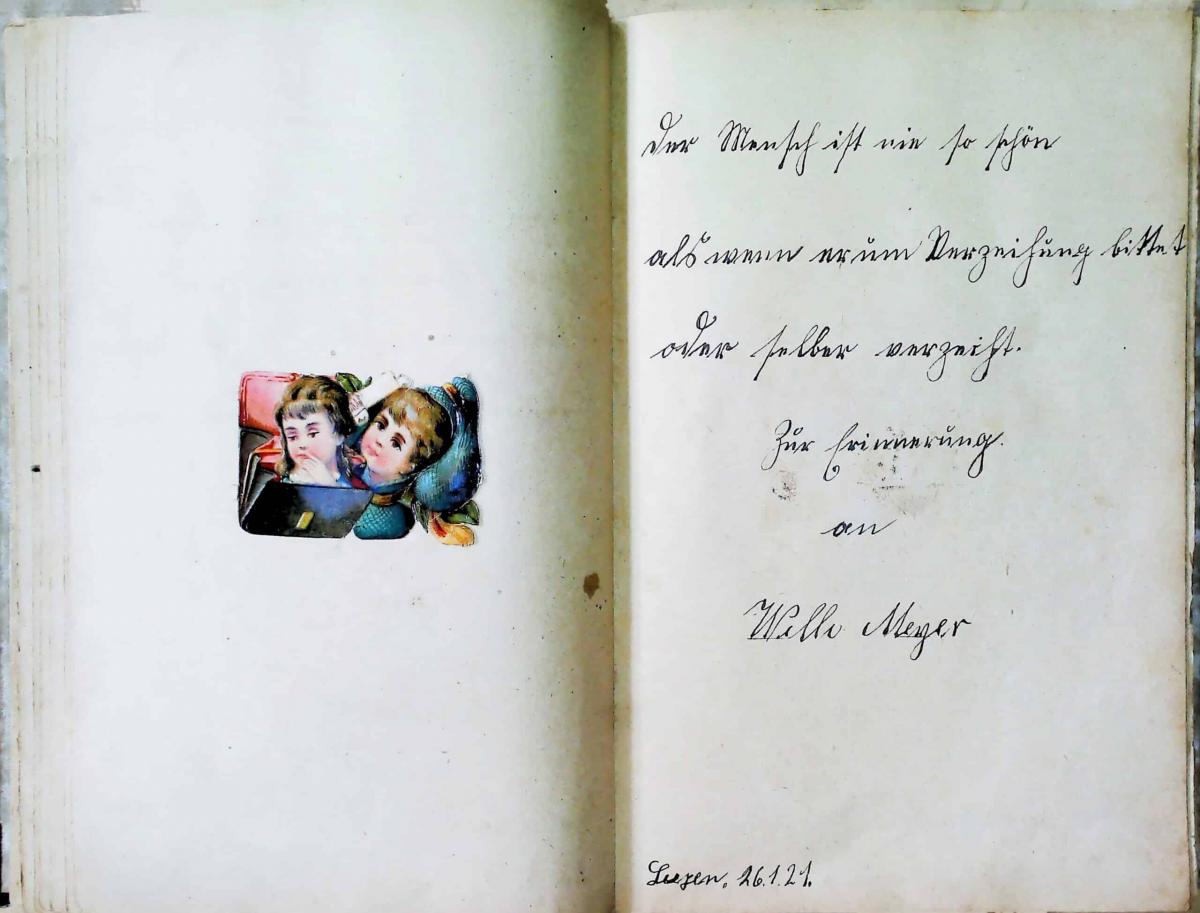 Der Mensch ist nie so schön
als wenn er um Verzeihung bittet
oder selber verzeiht.
Zur Erinnerung.
an
Willi Meyer
Leezen, 26.1.21.